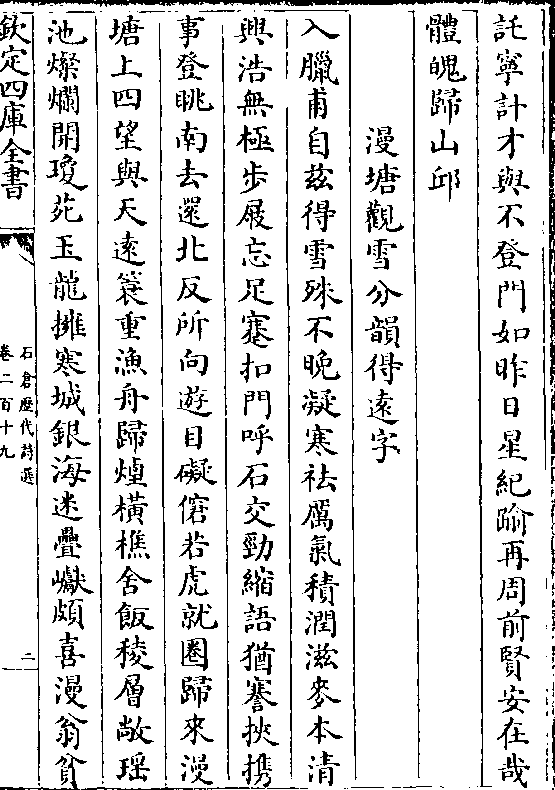 託寧計才與不登門如昨日星紀踰再周前賢安在哉
體魄歸山邱
漫塘觀雪分韻得遠字
入臘甫自兹得雪殊不晚凝寒袪厲氣積潤滋麥本清
興浩無極步屐忘足蹇扣門呼石交勁縮語猶謇挾携
事登眺南去還北反所向遊目礙窘若虎就圈歸來漫
塘上四望與天遠簑重漁舟歸煙橫樵舍飯稜層敞瑶
池燦爛開瓊苑玉龍擁寒城銀海迷疊巘頗喜漫翁貧
欽定四庫全書
石倉歷代詩選
卷二百十九
二